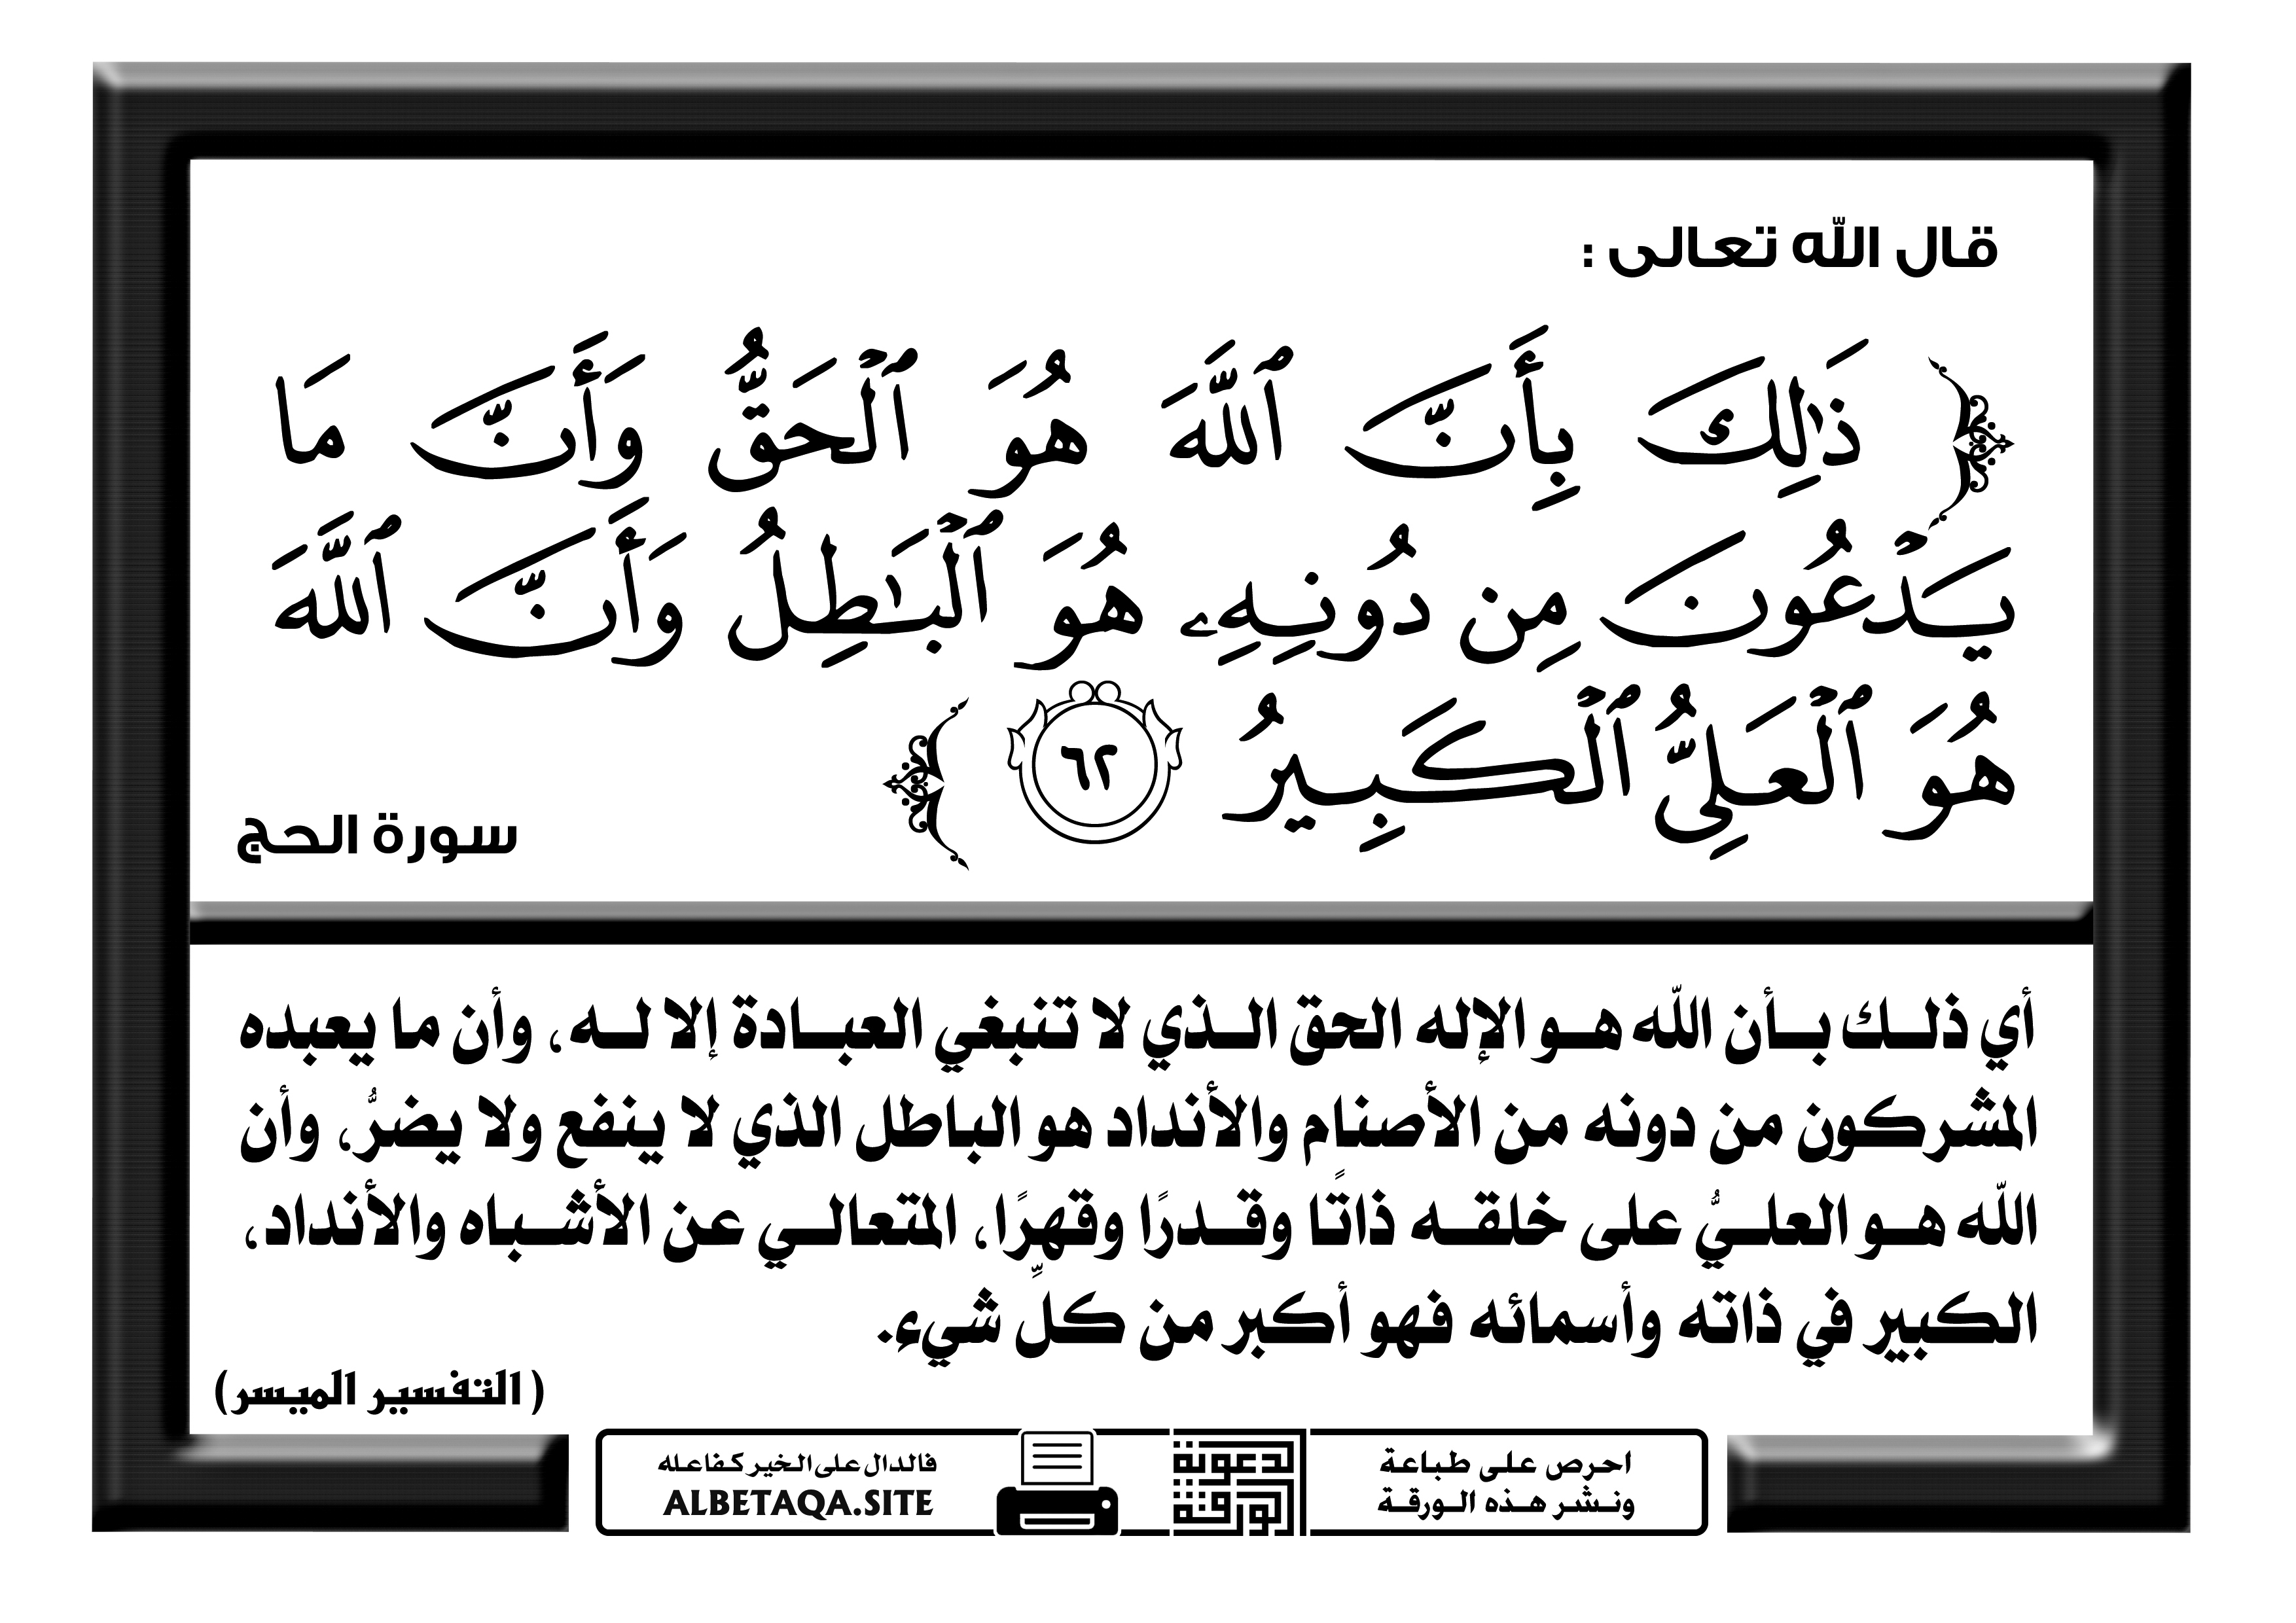 قال الله تعالى :
﴿ ذَٰلِكَ بِأَنَّ ٱللَّهَ هُوَ ٱلْحَقُّ وَأَنَّ مَا
يَدْعُونَ مِن دُونِهِۦ هُوَ ٱلْبَٰطِلُ وَأَنَّ ٱللَّهَ
هُوَ ٱلْعَلِىُّ ٱلْكَبِيرُ ٦٢ ﴾
سورة الحج
أي ذلك بأن الله هو الإله الحق الذي لا تنبغي العبادة إلا له، وأن ما يعبده
المشركون من دونه من الأصنام والأنداد هو الباطل الذي لا ينفع ولا يضرُّ، وأن
الله هو العليُّ على خلقه ذاتًا وقدرًا وقهرًا، المتعالي عن الأشباه والأنداد،
الكبير في ذاته وأسمائه فهو أكبر من كلِّ شيء.
( التفسير الميسر)
احرص على طباعة
ونشر هذه الورقة
الورقة
الدعوية
فالدال على الخير كفاعله
ALBETAQA.SITE